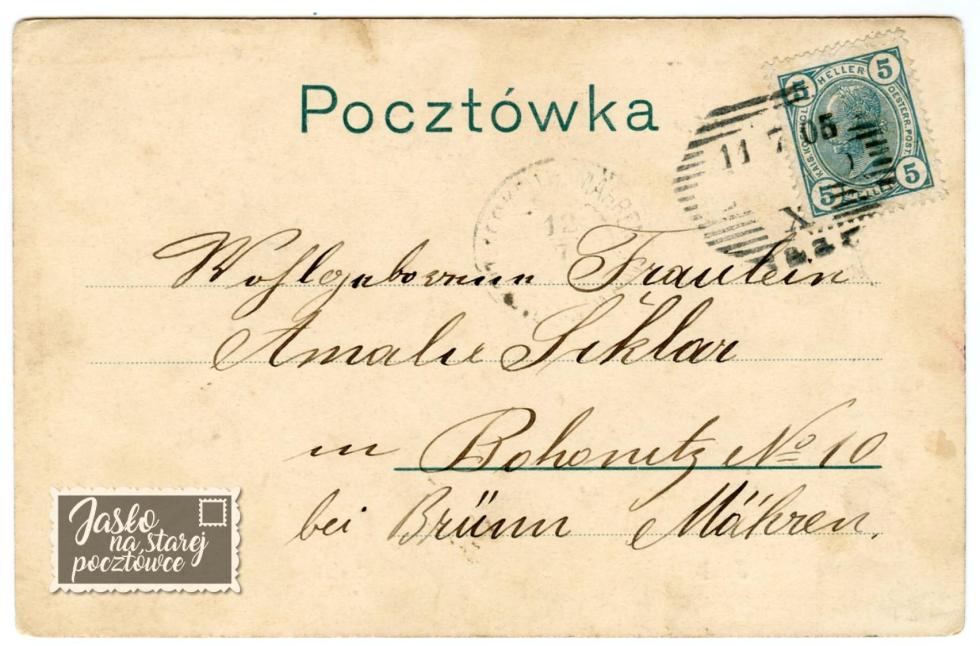 Pocztówka
5 HELLER 5
KAIS. KÖNIGL.
OESTERR. POST.
5 HELLER 5
11 7 05
X
12
7
Wohlgeborenen Fraulein
Amalie Siklar
in Bohonitz No 10
bei Brünn Mähren.
Jaśko
na starej
pocztówce